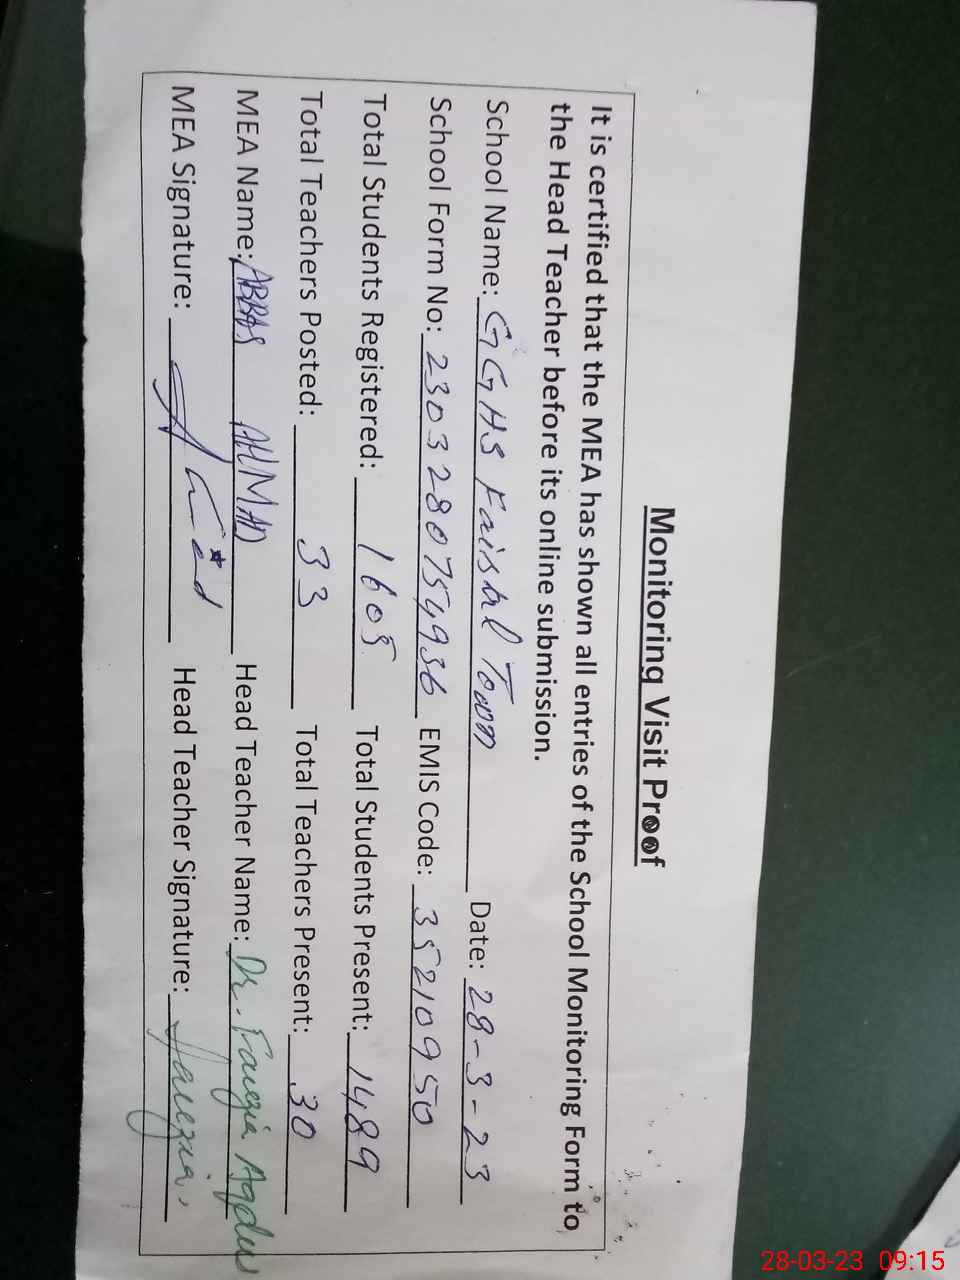 Monitoring Visit Proof
It is certified that the MEA has shown all entries of the School Monitoring Form to
the Head Teacher before its online submission.
School Name: GGHS Faisal Town Date: 28-3-23
School Form No: 2303280754936 EMIS Code: 35210950
Total Students Registered: 1605 Total Students Present: 1489
Total Teachers Posted: 33 Total Teachers Present: 30
MEA Name: ABBAS AHMAD Head Teacher Name: Dr. Fauzia Aqdus
MEA Signature: Head Teacher Signature: Fauzia
28-03-23 09:15